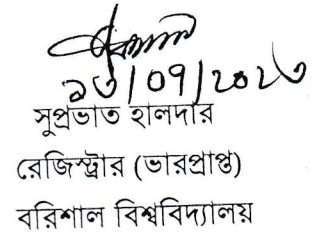 ১৩/০৭/২০২৩
সুপ্রভাত হালদার
রেজিস্ট্রার (ভারপ্রাপ্ত)
বরিশাল বিশ্ববিদ্যালয়